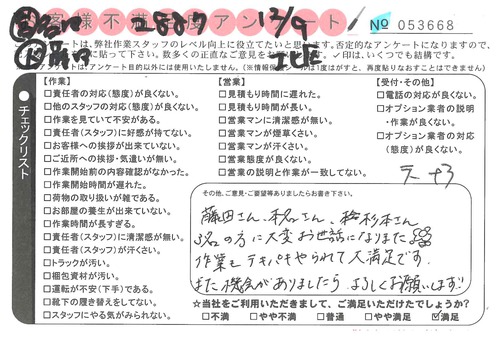 お客様不満度アンケート
2887 12/9
№ 053668
ートは、弊社作業スタッフのレベル向上に役立てたいと思います。否定的なアンケートになりますので、
✓印は、いくつでも結構です。
【作業】
□責任者の対応(態度)が良くない。
□他のスタッフの対応(態度)が良くない。
□作業を見ていて不安がある。
□責任者(スタッフ)に好感が持てない。
□お客様への挨拶が出来ていない。
□ご近所への挨拶・気遣いが無い。
□作業開始前の内容確認がなかった。
□作業開始時間が遅れた。
□荷物の取り扱いが雑である。
□お部屋の養生が出来ていない。
□作業時間が長すぎる。
□責任者(スタッフ)に清潔感が無い。
□責任者(スタッフ)が汗くさい。
□トラックが汚い。
□梱包資材が汚い。
□運転が不安(下手)である。
□靴下の履き替えをしてない。
□スタッフにやる気がみられない。
【営業】
□見積もり時間に遅れた。
□見積もり時間が長い。
□営業マンに清潔感が無い。
□営業マンが煙草くさい。
□営業マンが汗くさい。
□営業態度が良くない。
□営業の説明と作業が一致してない。
【受付・その他】
□電話の対応が良くない。
□オプション業者の説明
・作業が良くない。
□オプション業者の対応
(態度)が良くない。
チェックリスト
その他、ご意見・ご要望等ありましたらお書き下さい。
3名の方に大変お世話になりました
作業もテキパキやられて大満足です。
また機会がありましたら よろしくお願いします!!
☆当社をご利用いただきまして、ご満足いただけたでしょうか?
□不満 □やや不満 □普通 □やや満足 ☑満足